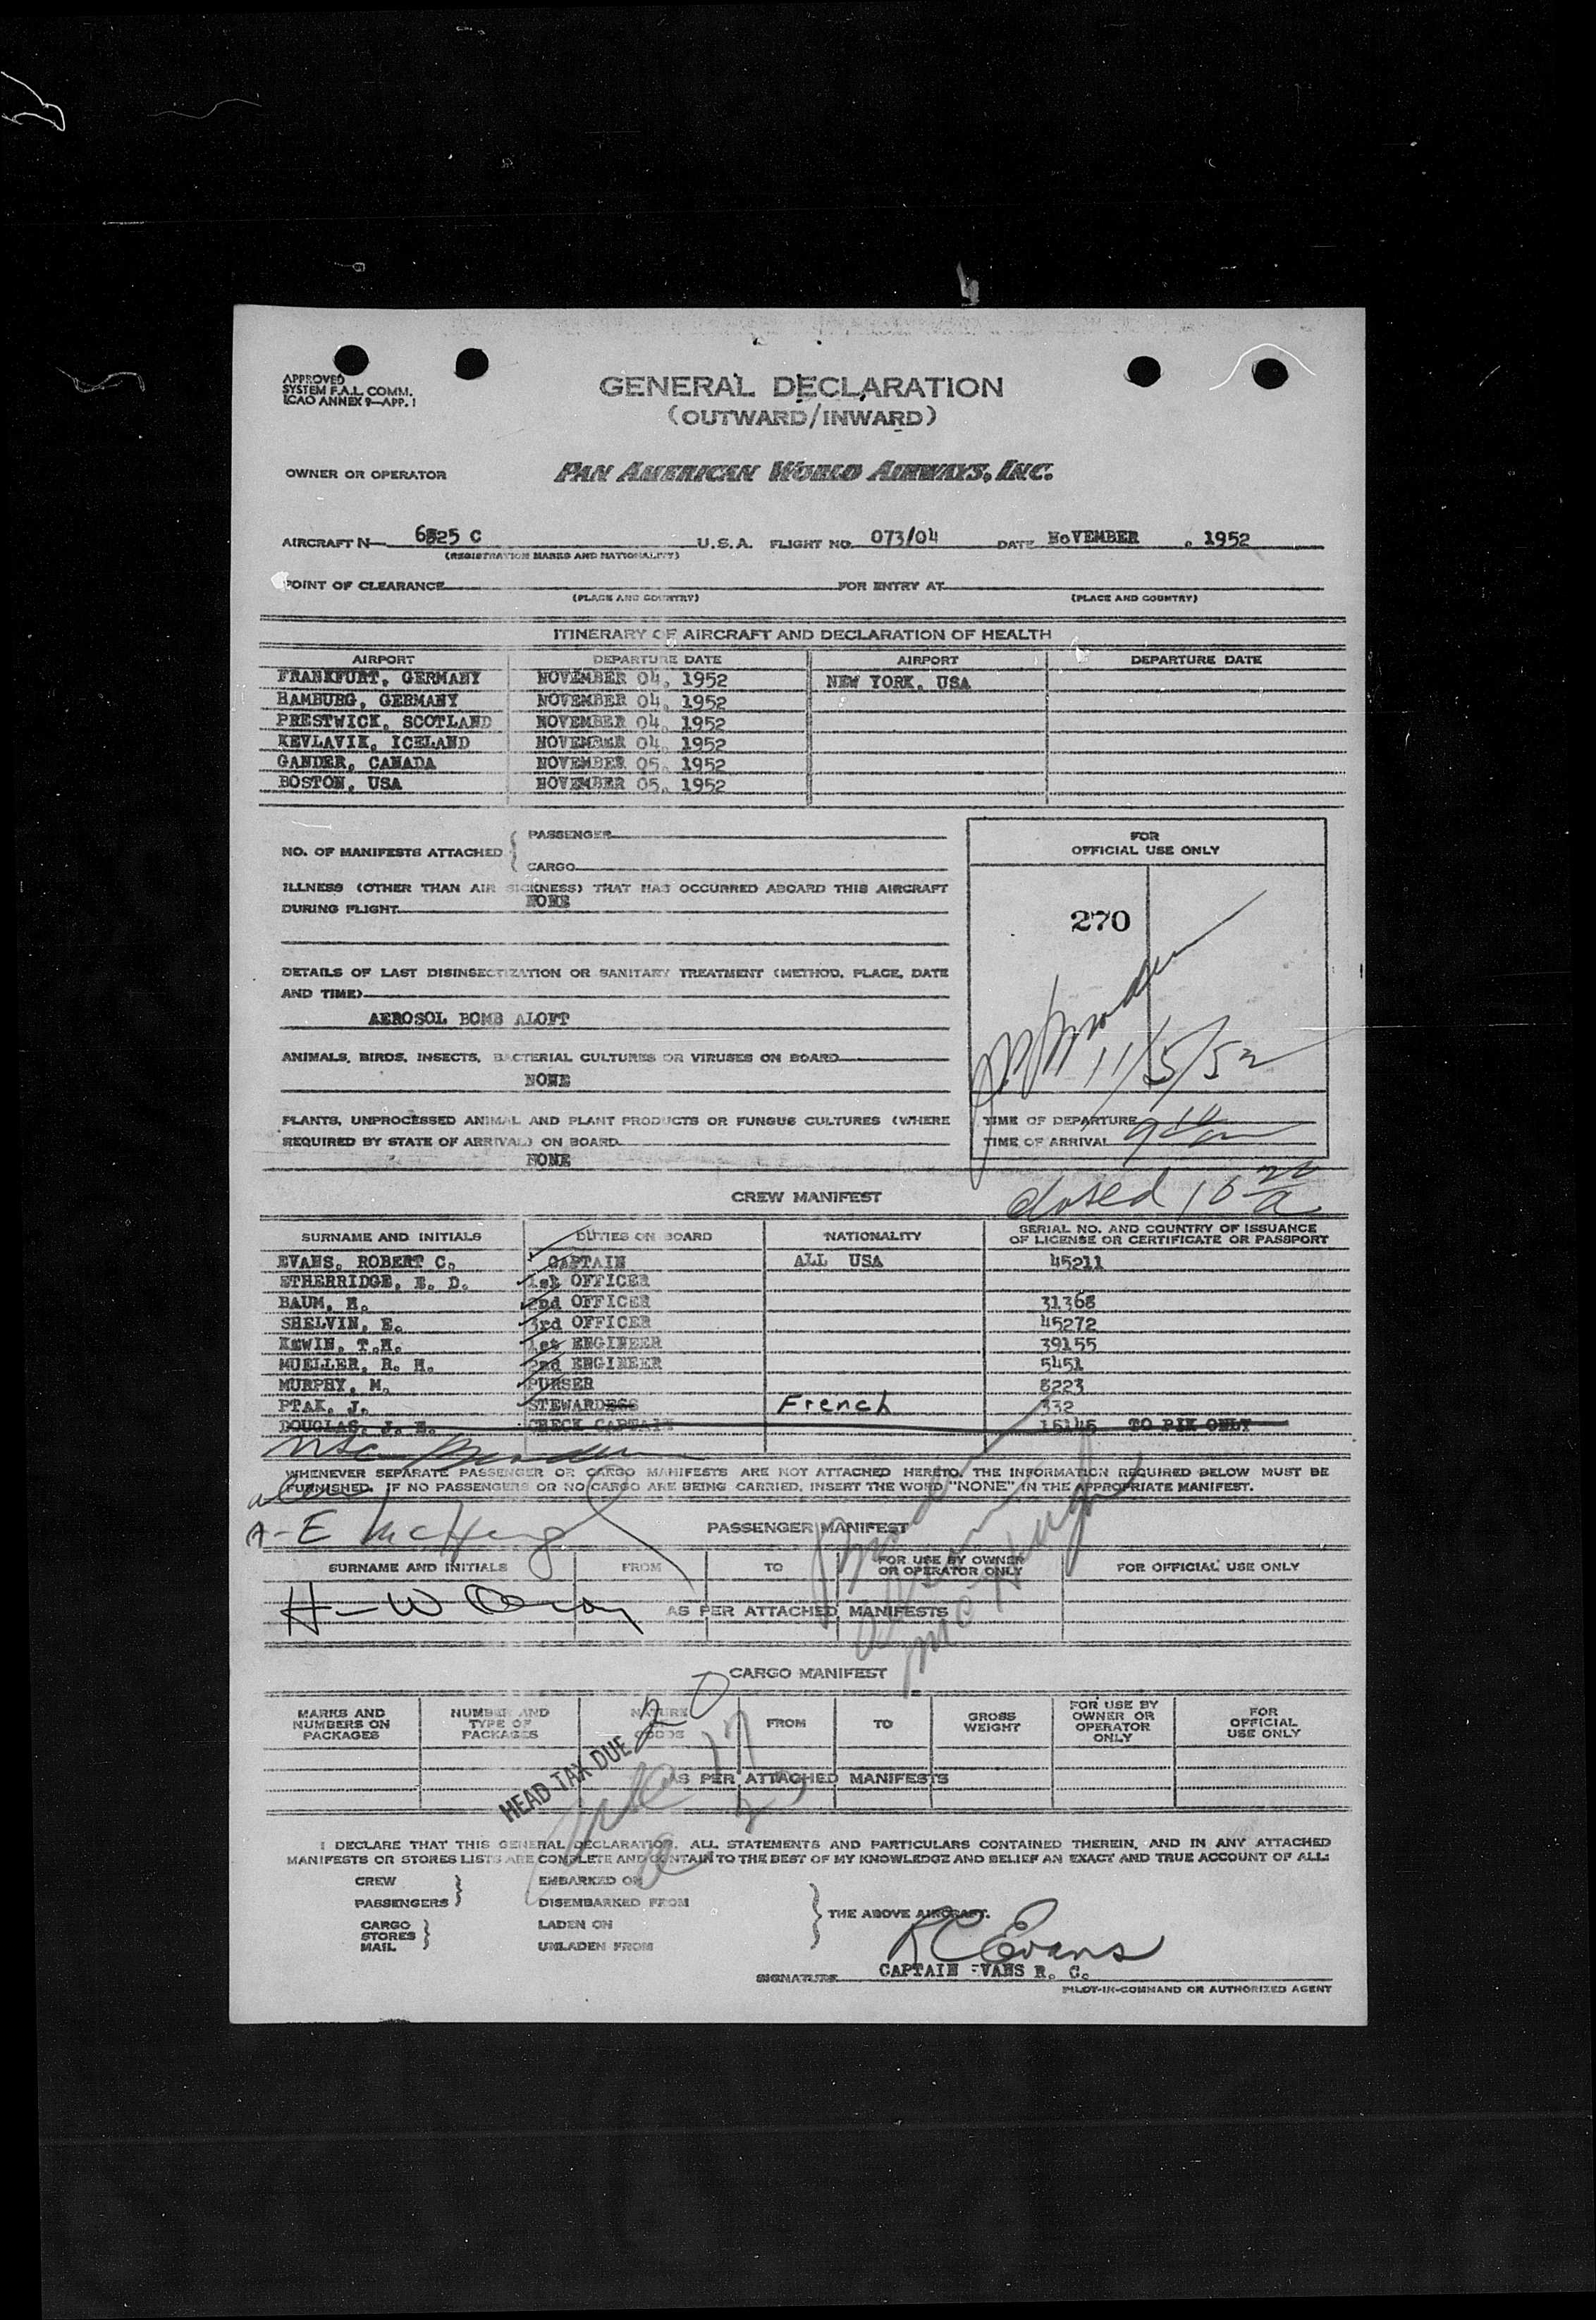 APPROVED
SYSTEM F.A.L. COMM.
ICAO ANNEX 9—APP. 1
GENERAL DECLARATION
(OUTWARD/INWARD)
OWNER OR OPERATOR PAN AMERICAN WORLD AIRWAYS, INC.
AIRCRAFT N— 6825 C U.S.A. FLIGHT NO. 073/04 DATE NoVEMBER , 1952
(REGISTRATION MARKS AND NATIONALITY)
POINT OF CLEARANCE FOR ENTRY AT
(PLACE AND COUNTRY) (PLACE AND COUNTRY)
ITINERARY OF AIRCRAFT AND DECLARATION OF HEALTH
AIRPORT DEPARTURE DATE AIRPORT DEPARTURE DATE
FRANKFURT, GERMANY NOVEMBER 04, 1952 NEW YORK, USA
HAMBURG, GERMANY NOVEMBER 04, 1952
PRESTWICK, SCOTLAND NOVEMBER 04, 1952
KEVLAVIK, ICELAND NOVEMBER 04, 1952
GANDER, CANADA NOVEMBER 05, 1952
BOSTON, USA NOVEMBER 05, 1952
NO. OF MANIFESTS ATTACHED PASSENGER
CARGO
FOR
OFFICIAL USE ONLY
ILLNESS (OTHER THAN AIR SICKNESS) THAT HAS OCCURRED ABOARD THIS AIRCRAFT
DURING FLIGHT NONE
270
DETAILS OF LAST DISINSECTIZATION OR SANITARY TREATMENT (METHOD, PLACE, DATE
AND TIME)
AEROSOL BOMB ALOFT
11/5/52
ANIMALS, BIRDS, INSECTS, BACTERIAL CULTURES OR VIRUSES ON BOARD
NONE
PLANTS, UNPROCESSED ANIMAL AND PLANT PRODUCTS OR FUNGUS CULTURES (WHERE
REQUIRED BY STATE OF ARRIVAL) ON BOARD
NONE
TIME OF DEPARTURE
TIME OF ARRIVAL
CREW MANIFEST closed 10 20/a
SURNAME AND INITIALS DUTIES ON BOARD NATIONALITY SERIAL NO. AND COUNTRY OF ISSUANCE
OF LICENSE OR CERTIFICATE OR PASSPORT
EVANS, ROBERT C. CAPTAIN ALL USA 45211
ETHERRIDGE, E. D. 1st OFFICER
BAUM, H. 2nd OFFICER 31368
SHELVIN, E. 3rd OFFICER 45272
KEWIN, T.H. 1st ENGINEER 39155
MUELLER, R. H. 2nd ENGINEER 5451
MURPHY, M. PURSER 8223
PTAK, J. STEWARDESS French 332
DOUGLAS, J. E. CHECK CAPTAIN 16145 TO PIK ONLY
WHENEVER SEPARATE PASSENGER OR CARGO MANIFESTS ARE NOT ATTACHED HERETO, THE INFORMATION REQUIRED BELOW MUST BE
FURNISHED. IF NO PASSENGERS OR NO CARGO ARE BEING CARRIED, INSERT THE WORD "NONE" IN THE APPROPRIATE MANIFEST.
PASSENGER MANIFEST
SURNAME AND INITIALS FROM TO FOR USE BY OWNER
OR OPERATOR ONLY FOR OFFICIAL USE ONLY
AS PER ATTACHED MANIFESTS
CARGO MANIFEST
MARKS AND
NUMBERS ON
PACKAGES NUMBER AND
TYPE OF
PACKAGES NATURE
GOODS FROM TO GROSS
WEIGHT FOR USE BY
OWNER OR
OPERATOR
ONLY FOR
OFFICIAL
USE ONLY
HEAD TAX DUE 20
AS PER ATTACHED MANIFESTS
I DECLARE THAT THIS GENERAL DECLARATION, ALL STATEMENTS AND PARTICULARS CONTAINED THEREIN, AND IN ANY ATTACHED
MANIFESTS OR STORES LISTS ARE COMPLETE AND CONTAIN TO THE BEST OF MY KNOWLEDGE AND BELIEF AN EXACT AND TRUE ACCOUNT OF ALL:
CREW EMBARKED ON
PASSENGERS DISEMBARKED FROM
THE ABOVE AIRCRAFT.
CARGO LADEN ON
STORES
MAIL UNLADEN FROM
R C Evans
SIGNATURE CAPTAIN EVANS R. C.
PILOT-IN-COMMAND OR AUTHORIZED AGENT